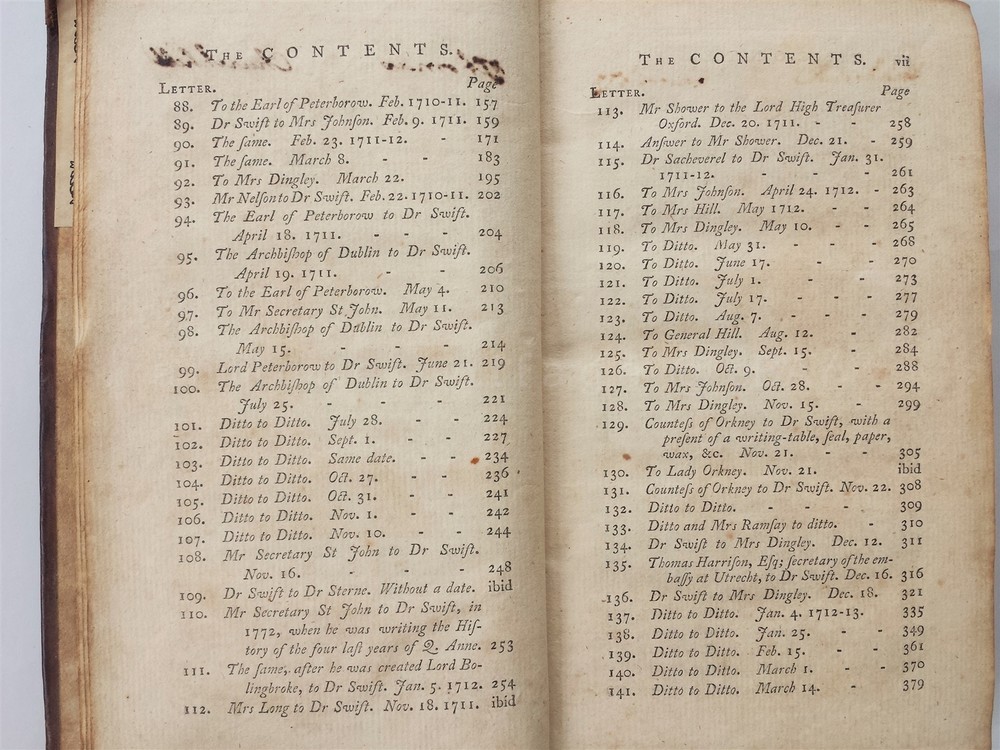 THE CONTENTS.
LETTER. Page
88. To the Earl of Peterborow. Feb. 1710-11. 157
89. Dr Swift to Mrs Johnſon. Feb. 9. 1711. 159
90. The ſame. Feb. 23. 1711-12. - 171
91. The ſame. March 8. - - 183
92. To Mrs Dingley. March 22. 195
93. Mr Nelſon to Dr Swift. Feb. 22. 1710-11. 202
94. The Earl of Peterborow to Dr Swift.
April 18. 1711. - - - 204
95. The Archbiſhop of Dublin to Dr Swift.
April 19. 1711. - - 206
96. To the Earl of Peterborow. May 4. 210
97. To Mr Secretary St John. May 11. 213
98. The Archbiſhop of Dublin to Dr Swift.
May 15. - - - - 214
99. Lord Peterborow to Dr Swift. June 21. 219
100. The Archbiſhop of Dublin to Dr Swift.
July 25. - - - - 221
101. Ditto to Ditto. July 28. - - 224
102. Ditto to Ditto. Sept. 1. - - 227
103. Ditto to Ditto. Same date. - - 234
104. Ditto to Ditto. Oct. 27. - - 236
105. Ditto to Ditto. Oct. 31. - - 241
106. Ditto to Ditto. Nov. 1. - - 242
107. Ditto to Ditto. Nov. 10. - - 244
108. Mr Secretary St John to Dr Swift.
Nov. 16. - - - 248
109. Dr Swift to Dr Sterne. Without a date. ibid
110. Mr Secretary St John to Dr Swift, in
1772, when he was writing the Hiſ-
tory of the four laſt years of Q. Anne. 253
111. The ſame, after he was created Lord Bo-
lingbroke, to Dr Swift. Jan. 5. 1712. 254
112. Mrs Long to Dr Swift. Nov. 18. 1711. ibid
THE CONTENTS. vii
LETTER. Page
113. Mr Shower to the Lord High Treaſurer
Oxford. Dec. 20. 1711. - - 258
114. Anſwer to Mr Shower. Dec. 21. - 259
115. Dr Sacheverel to Dr Swift. Jan. 31.
1711-12. - - - - 261
116. To Mrs Johnſon. April 24. 1712. - 263
117. To Mrs Hill. May 1712. - - 264
118. To Mrs Dingley. May 10. - - 265
119. To Ditto. May 31. - - - 268
120. To Ditto. June 17. - - 270
121. To Ditto. July 1. - - - 273
122. To Ditto. July 17. - - - 277
123. To Ditto. Aug. 7. - - - 279
124. To General Hill. Aug. 12. - 282
125. To Mrs Dingley. Sept. 15. - 284
126. To Ditto. Oct. 9. - - 288
127. To Mrs Johnſon. Oct. 28. - - 294
128. To Mrs Dingley. Nov. 15. - 299
129. Counteſs of Orkney to Dr Swift, with a
preſent of a writing-table, ſeal, paper,
wax, &c. Nov. 21. - - 305
130. To Lady Orkney. Nov. 21. ibid
131. Counteſs of Orkney to Dr Swift. Nov. 22. 308
132. Ditto to Ditto. - - - - 309
133. Ditto and Mrs Ramſay to ditto. - 310
134. Dr Swift to Mrs Dingley. Dec. 12. 311
135. Thomas Harriſon, Eſq; ſecretary of the em-
baſſy at Utrecht, to Dr Swift. Dec. 16. 316
136. Dr Swift to Mrs Dingley. Dec. 18. 321
137. Ditto to Ditto. Jan. 4. 1712-13. 335
138. Ditto to Ditto. Jan. 25. - - 349
139. Ditto to Ditto. Feb. 15. - - 361
140. Ditto to Ditto. March 1. - - 370
141. Ditto to Ditto. March 14. - 379